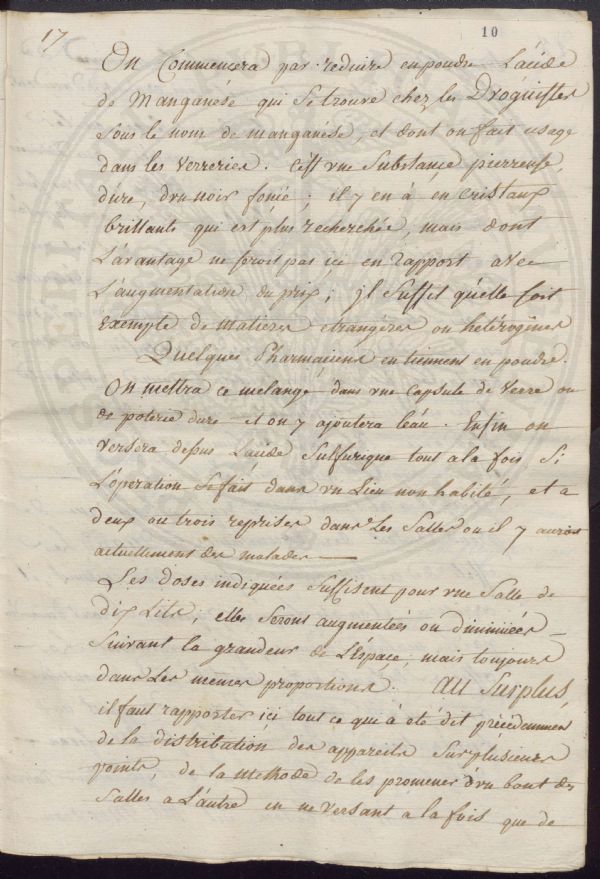 17
10
On Commencera par reduire en poudre L'acide
de Manganese qui Se trouve chez les Droguistes
Sous le nom de manganése, et dont on fait usage
dans les Verreries. C'est vne Substance pierreuse,
dure, d'vn noir foncé; il y en à en cristaux
brillants qui est plus recherchée, mais dont
L'avantage ne seroit pas ici en rapport avec
L'augmentation du prix; jl Suffit qu'elle soit
exempte de matieres etrangéres ou hétérogènes
Quelques Pharmaciens en tiennent en poudre.
On mettra ce melange dans vne capsule de verre ou
de poterie dure et on y ajoutera l'eau. Enfin on
versera dessus L'acide Sulfurique tout a la fois Si
L'operation Se fait dans vn Lieu non habité, et a
deux ou trois reprises dans Les Salles ou il y auroit
actuellement des malades —
Les doses indiquées Suffisent pour vne Salle de
dix Lits; elles Seront augmentées ou diminuées —
Suivant la grandeur de L'Espace, mais toujours
dans Les memes proportions. Au Surplus,
il faut rapporter ici tout ce qui à été dit précédemment
de la distribution des appareils Sur plusieurs
points, de la methode de les promener d'vn bout des
Salles a L'autre en ne versant a la fois que de